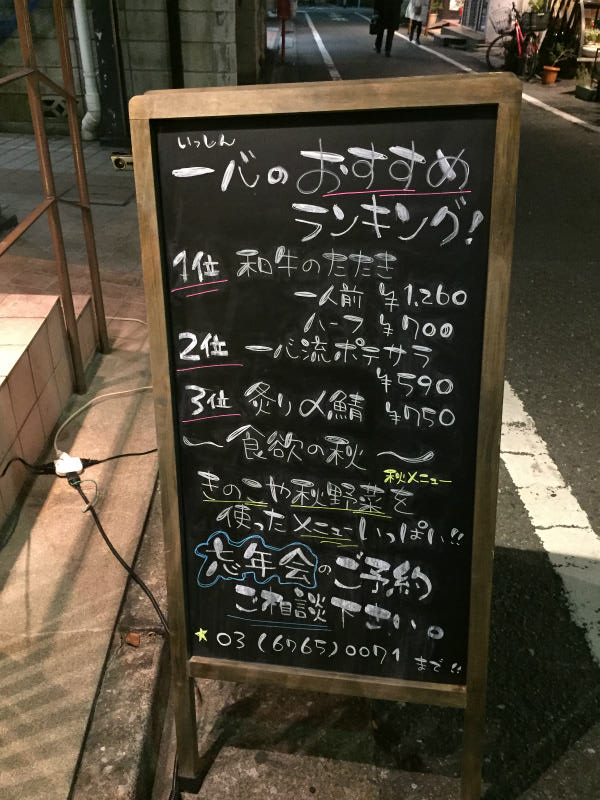 いっしん
一心のおすすめ
ランキング!
1位 和牛のたたき
一人前 ¥1.260
ハーフ ¥700
2位 一心流ポテサラ
¥590
3位 炙り〆鯖 ¥750
〜食欲の秋〜
秋メニュー
きのこや秋野菜を
使ったメニューいっぱい!!
忘年会のご予約
ご相談下さい。
★ 03 (6765) 0071 まで!!